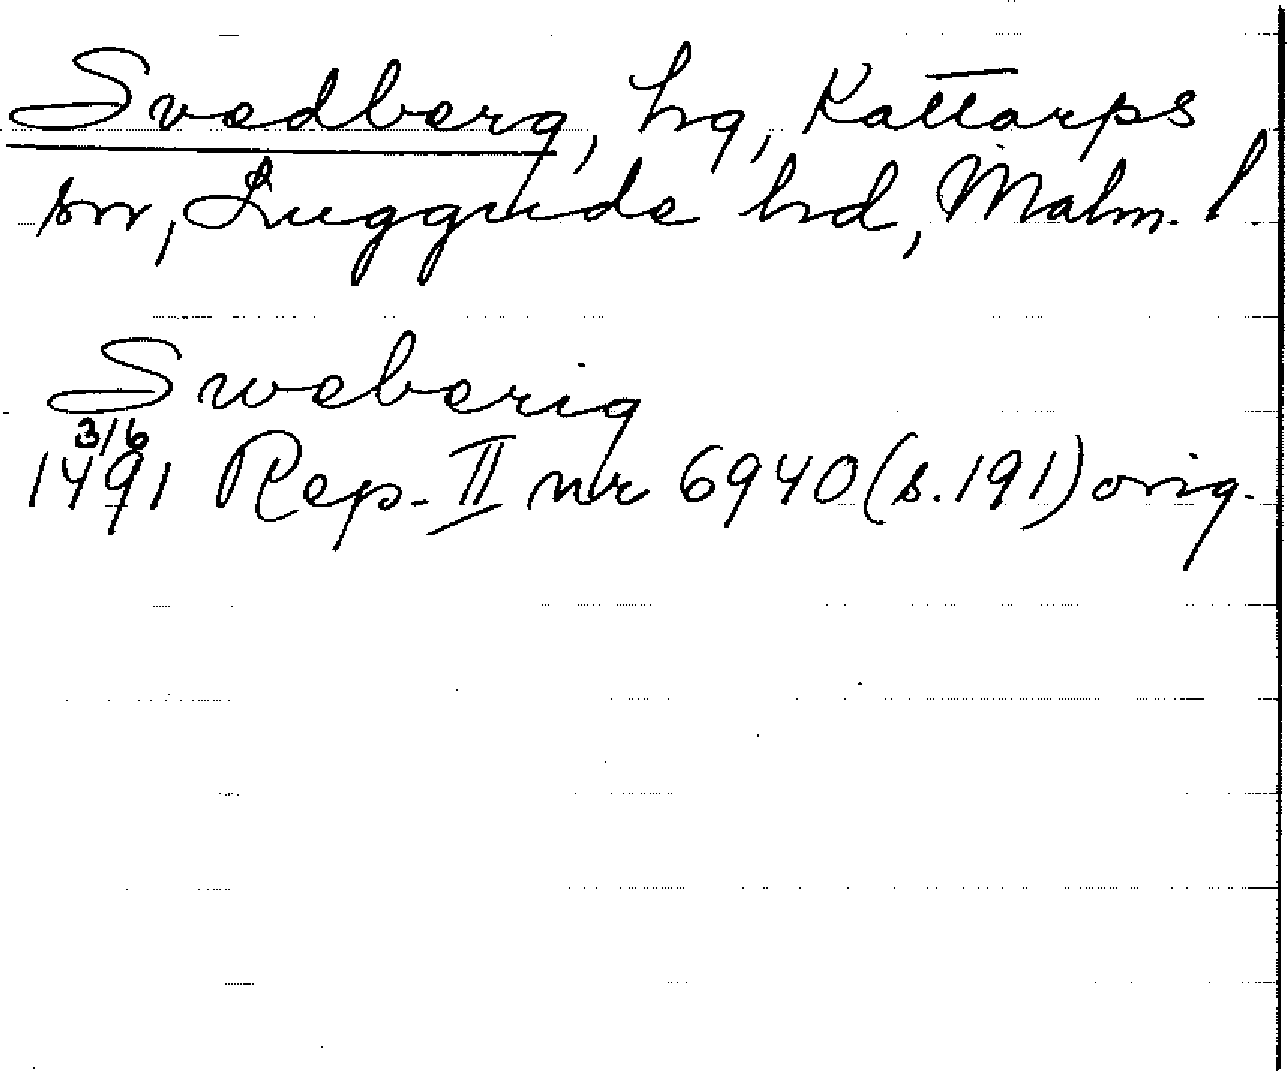 Svedberg, hg, Kattarps
sn, Luggude hd, Malm. l.
Sweberig
3/6
1491 Rep. II nr 6940 (s. 191) orig.